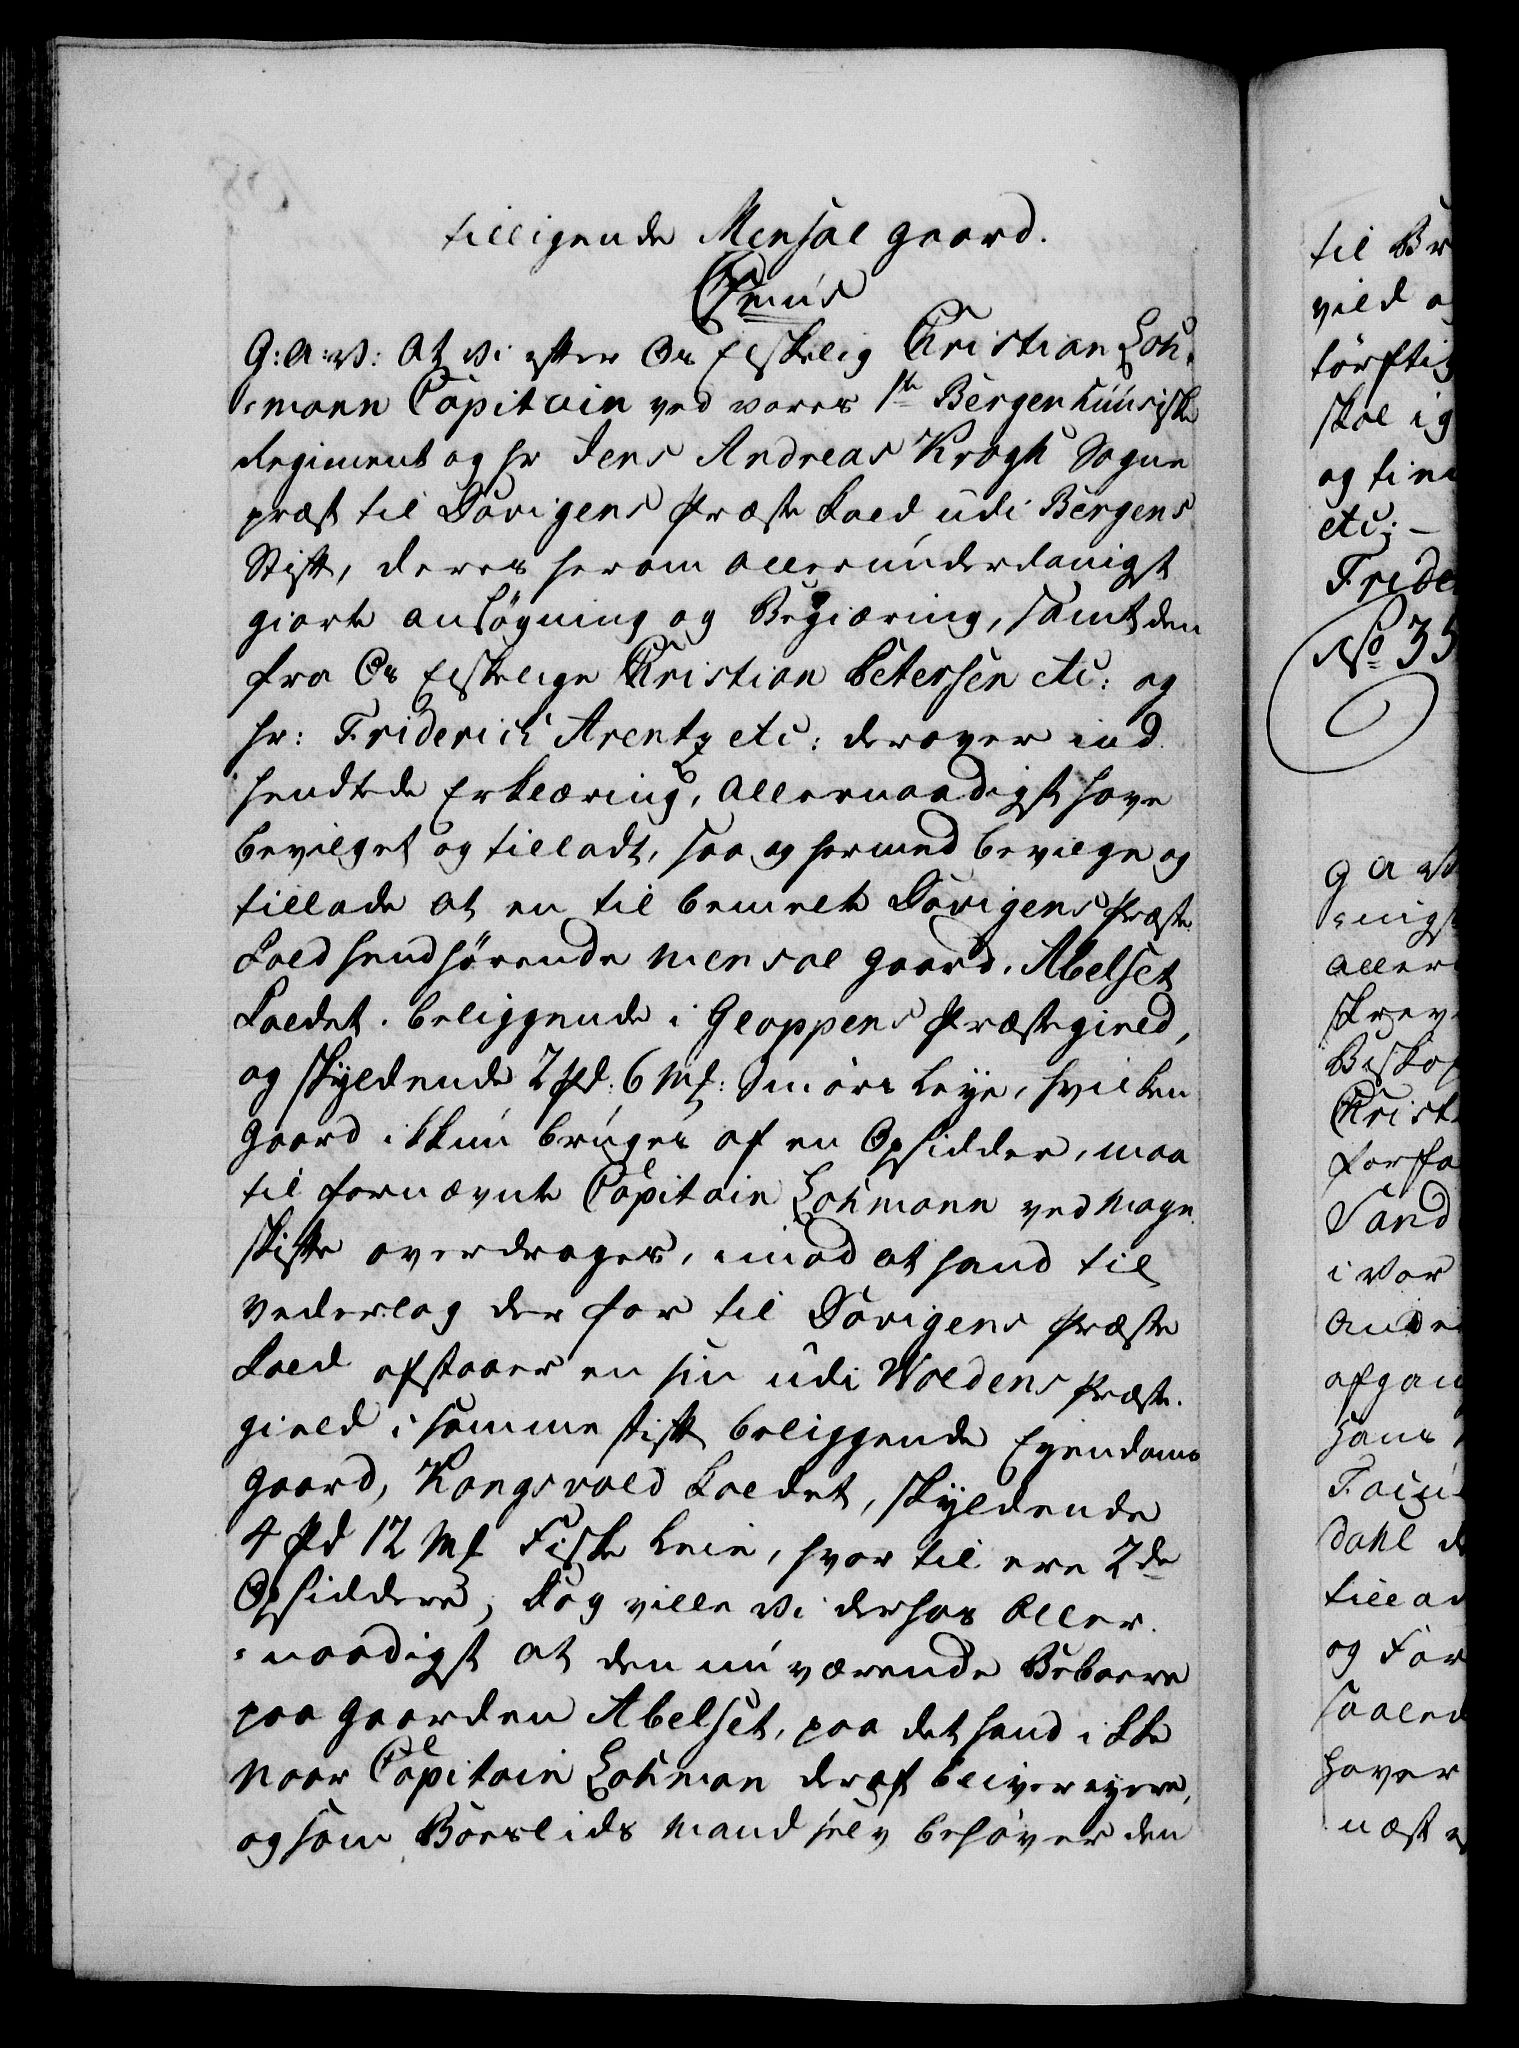 tilligende Mensal gaard.
Cfmus
G: A: V: At vi efter Os Elskelig Christian Loh-
-mann Capitain ved vores 1te Bergenhuusiske
Regiment og Hr Jens Andreas Krogh Sogne
præst til Davigens Præste Kald udi Bergens
Stift, deres herom allerunderdanigst
giorte ansøgning og Begiæring, samt den
fra Os Elskelige Christian Petersen etc: og
Hr: Friderich Arentz etc: derover ind
sendtede Erklæring, allernaadigst have
bevilget og tilladt, saa og hermed bevilge og
tillade at en til bemelte Davigens Præste
Kald henhørende mensal gaard, Abelset
kaldet. beliggende i Gloppens Præstegield,
og skyldende 2 Pd: 6 Mk: Smørs Leye, hvilken
gaard ikkun bruges af en Opsidder, maa
til fornævnte Capitain Lohmann ved mage
skifte overdrages, imod at hand til
vederlag der for til Davigens Præste
Kald afstaaer en sin udi Woldens Præste-
gield i samme stift beliggende Eyendoms
gaard, Kongsvold kaldet, skyldende
4 Pd 12 Mk Fiske Leie, hvor til ere 2de
Opsiddere, Dog ville Vi derhos Aller-
-naadigst at den nu værende Beboere
paa gaarden Abelset, paa det hand ikke
naar Capitain Lohman deraf bliver eyere,
og som Boeslids Mand selv behøver den
til Br
vild
tørftig
skal ig
og tine
etc: -
Fride
No 35
G A V
allern
skrev
Biskop
Christ
forfa
Sand
i Vor
afgan
Hans
dahl
tillad
og For
saaled
Haver
næst